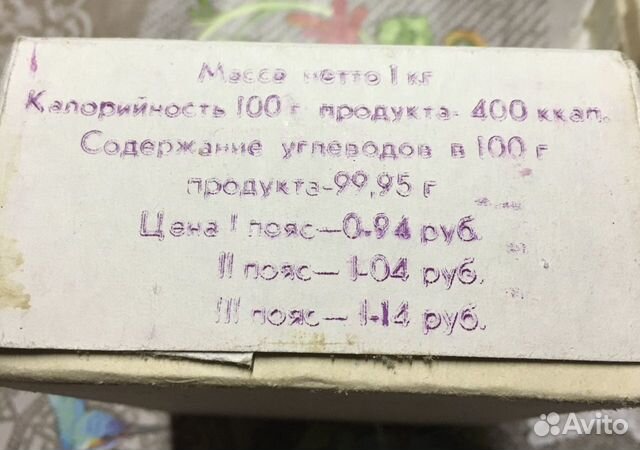 Масса нетто 1 кг
Калорийность 100 г продукта- 400 ккал.
Содержание углеводов в 100 г
продукта-99,95 г
Цена I пояс—0-94 руб.
II пояс— 1-04 руб.
III пояс— 1-14 руб.
Avito